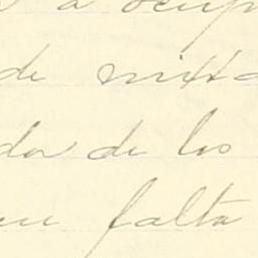 a ocup
de mitta
dor de los
su falta